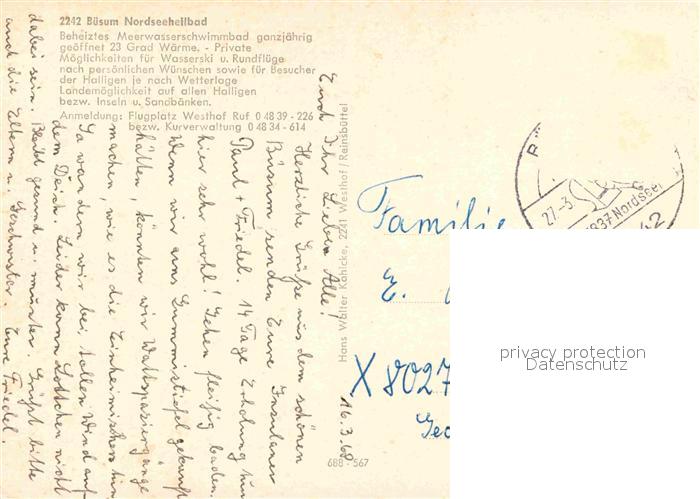 2242 Büsum Nordseeheilbad
Beheiztes Meerwasserschwimmbad ganzjährig
geöffnet 23 Grad Wärme. - Private
Möglichkeiten für Wasserski u. Rundflüge
nach persönlichen Wünschen sowie für Besucher
der Halligen je nach Wetterlage
Landemöglichkeit auf allen Halligen
bezw. Inseln u. Sandbänken.
Anmeldung: Flugplatz Westhof Ruf 0 48 39 - 226
bezw. Kurverwaltung 0 48 34 - 614
16.3.68
Euch Ihr Lieben Alle!
Herzliche Grüße aus dem schönen
Büsum senden Eure Insulaner
Paul + Friedel. 14 Tage Erholung tun
hier sehr wohl! Gehen fleißig baden.
Wenn wir uns Gummistiefel gekauft
hätten, könnten wir Wattspaziergänge
machen, wie es die Einheimischen tun.
So wandern wir bei tollen Wind auf
dem Deich. Leider kann Lottchen nicht
dabei sein. Bleibt gesund u. munter. Grüßt bitte
auch die Eltern u. Geschwister. Eure Friedel.
Hans Walter Kahlcke, 2241 Westhof / Reinsbüttel
688 - 567
Familie
E.
X 8027
27.-3.
1837 Nordsee
42
privacy protection
Datenschutz